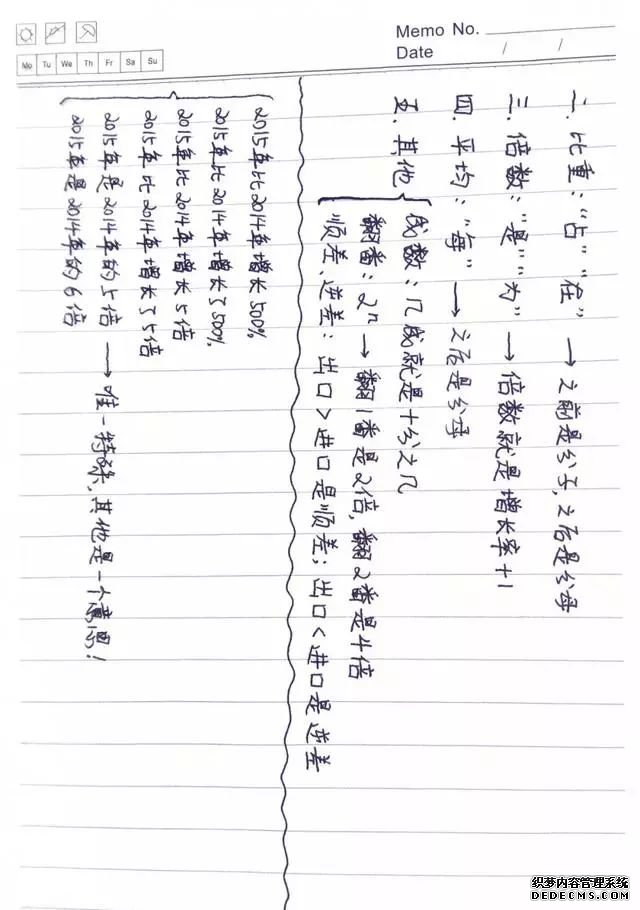 Memo No.
Date / /
Mo Tu We Th Fr Sa Su
二、比重："占""在" → 之前是分子，之后是分母
三、倍数："是""为" → 倍数就是增长率+1
四、平均："每" → 之后是分母
五、其他
成数：几成就是十分之几
翻番：2ⁿ → 翻1番是2倍，翻2番是4倍
顺差、逆差：出口>进口是顺差；出口<进口是逆差
2015年比2014年增长500%
2015年比2014年增长了500%
2015年比2014年增长5倍
2015年比2014年增长了5倍
2015年是2014年的5倍 → 唯一特殊，其他是一个意思！
2015年是2014年的6倍
织梦内容管理系统
DEDECMS.COM